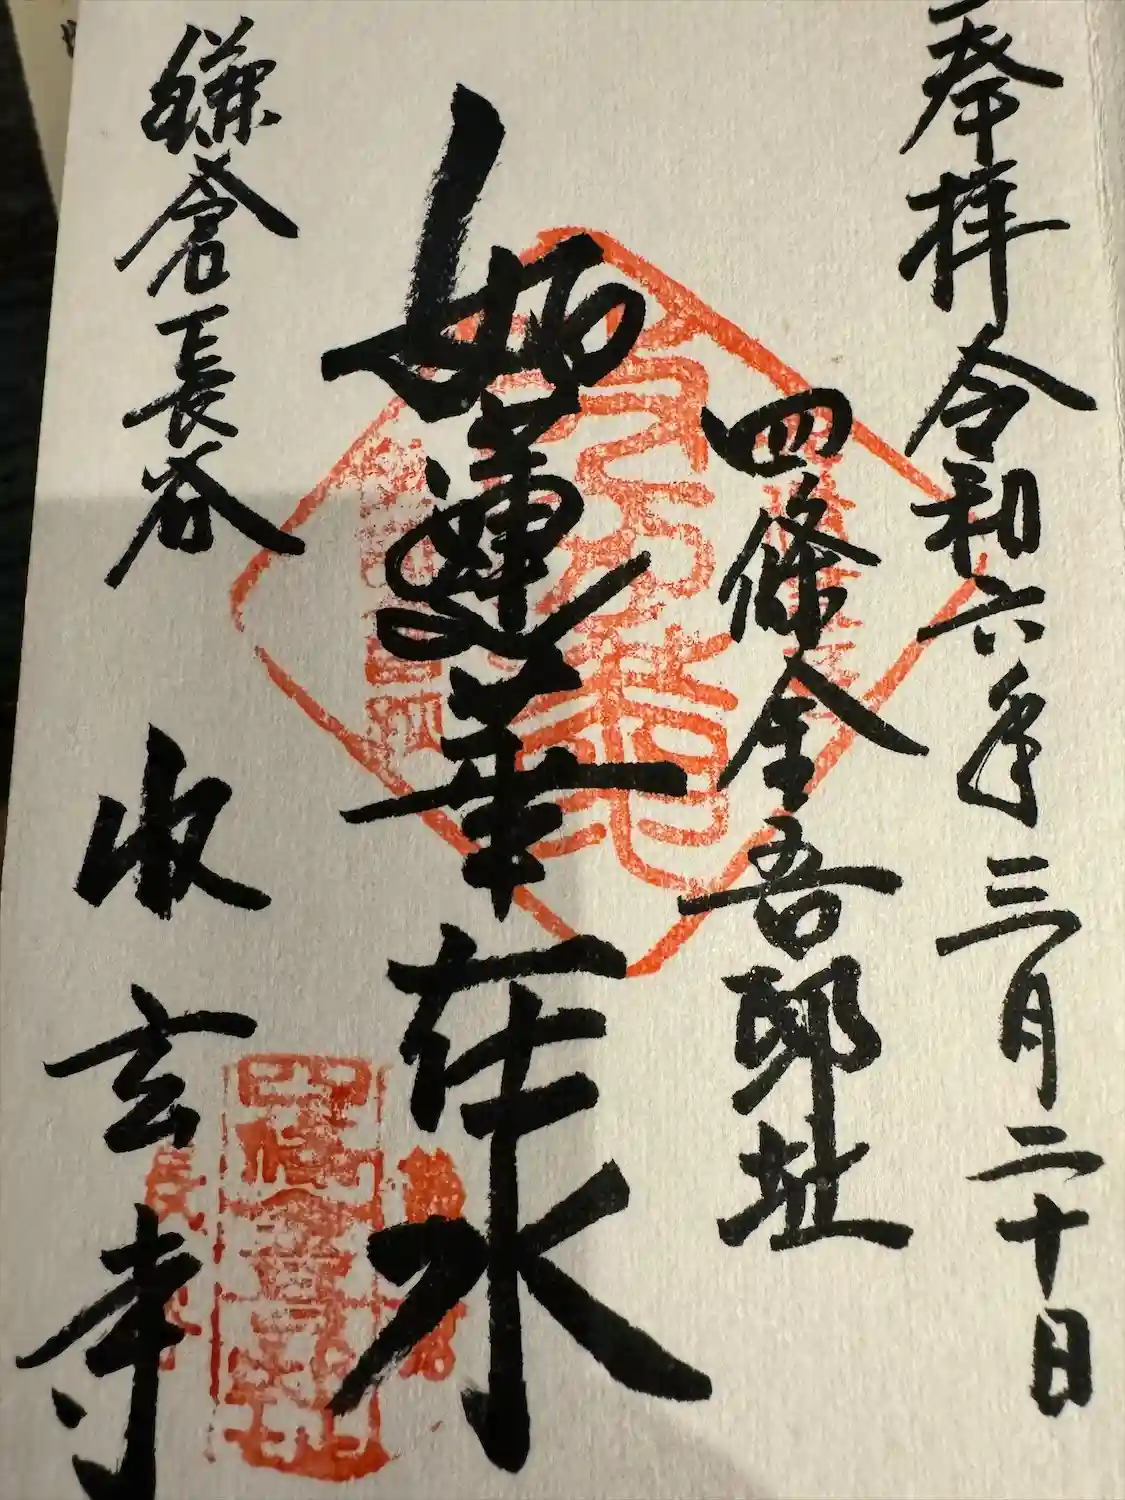 奉拝 令和六年三月二十日
四條金吾邸址
如蓮華在水
鎌倉長谷 收玄寺